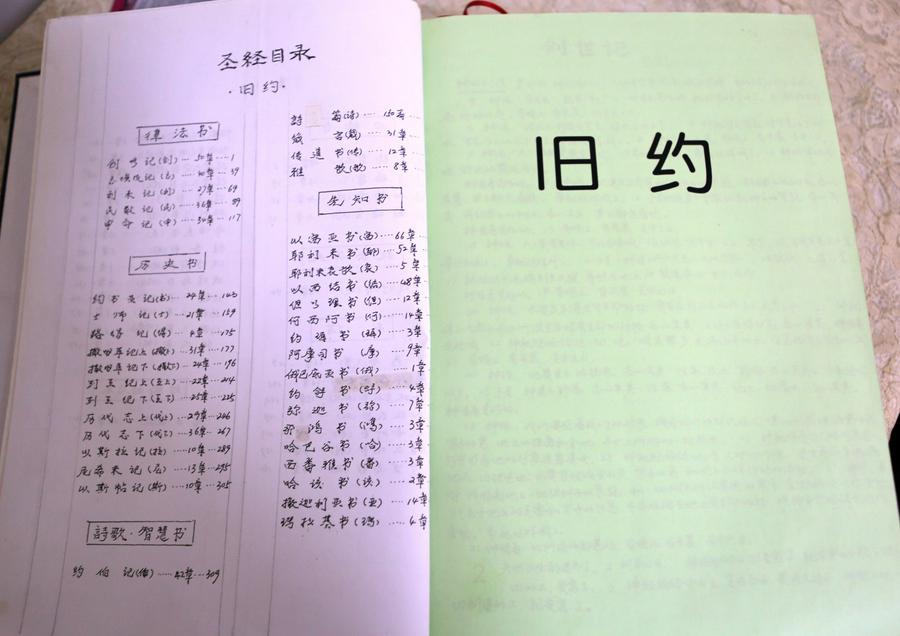 圣経目录
·旧约·
律法书
创世记(创)…50章…1
出埃及记(出)…40章…39
利未记(利)…27章…69
民数记(民)…36章…89
申命记(申)…34章…117
历史书
约书亚记(书)…24章…143
士师记(士)…21章…159
路得记(得)…4章…175
撒母耳记上(撒上)…31章…177
撒母耳记下(撒下)…24章…196
列王纪上(王上)…22章…214
列王纪下(王下)…25章…225
历代志上(代上)…29章…246
历代志下(代下)…36章…267
以斯拉记(拉)…10章…289
尼希米记(尼)…13章…295
以斯帖记(斯)…10章…305
詩歌·智慧书
约伯记(伯)……42章…309
詩篇(诗)…150篇
箴言(箴)…31章
传道书(传)…12章
雅歌(歌)…8章
先知书
以赛亚书(赛)…66章
耶利米书(耶)…52章
耶利米哀歌(哀)…5章
以西结书(结)…48章
但以理书(但)…12章
何西阿书(何)…14章
约珥书(珥)…3章
阿摩司书(摩)…9章
俄巴底亚书(俄)…1章
约拿书(拿)…4章
弥迦书(弥)…7章
那鸿书(鸿)…3章
哈巴谷书(哈)…3章
西番雅书(番)…3章
哈该书(该)…2章
撒迦利亚书(亚)…14章
玛拉基书(玛)…4章
旧约